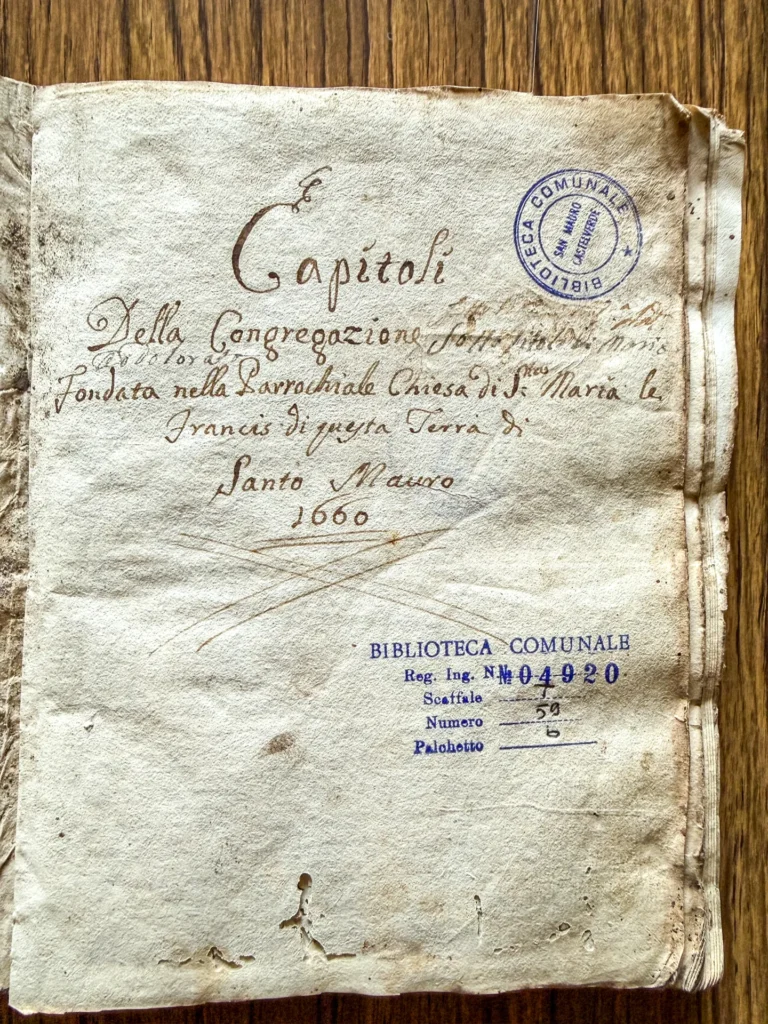 Capitoli
BIBLIOTECA COMUNALE
SAN MAURO
CASTELVERDE
Della Congregazione Sotto titolo di Maria
Addolorata
Fondata nella Parrochiale Chiesa di S. Maria le
Francis di questa Terra di
Santo Mauro
1660
BIBLIOTECA COMUNALE
Reg. Ing. N № 04920
Scaffale 7
Numero 59
Palchetto 6